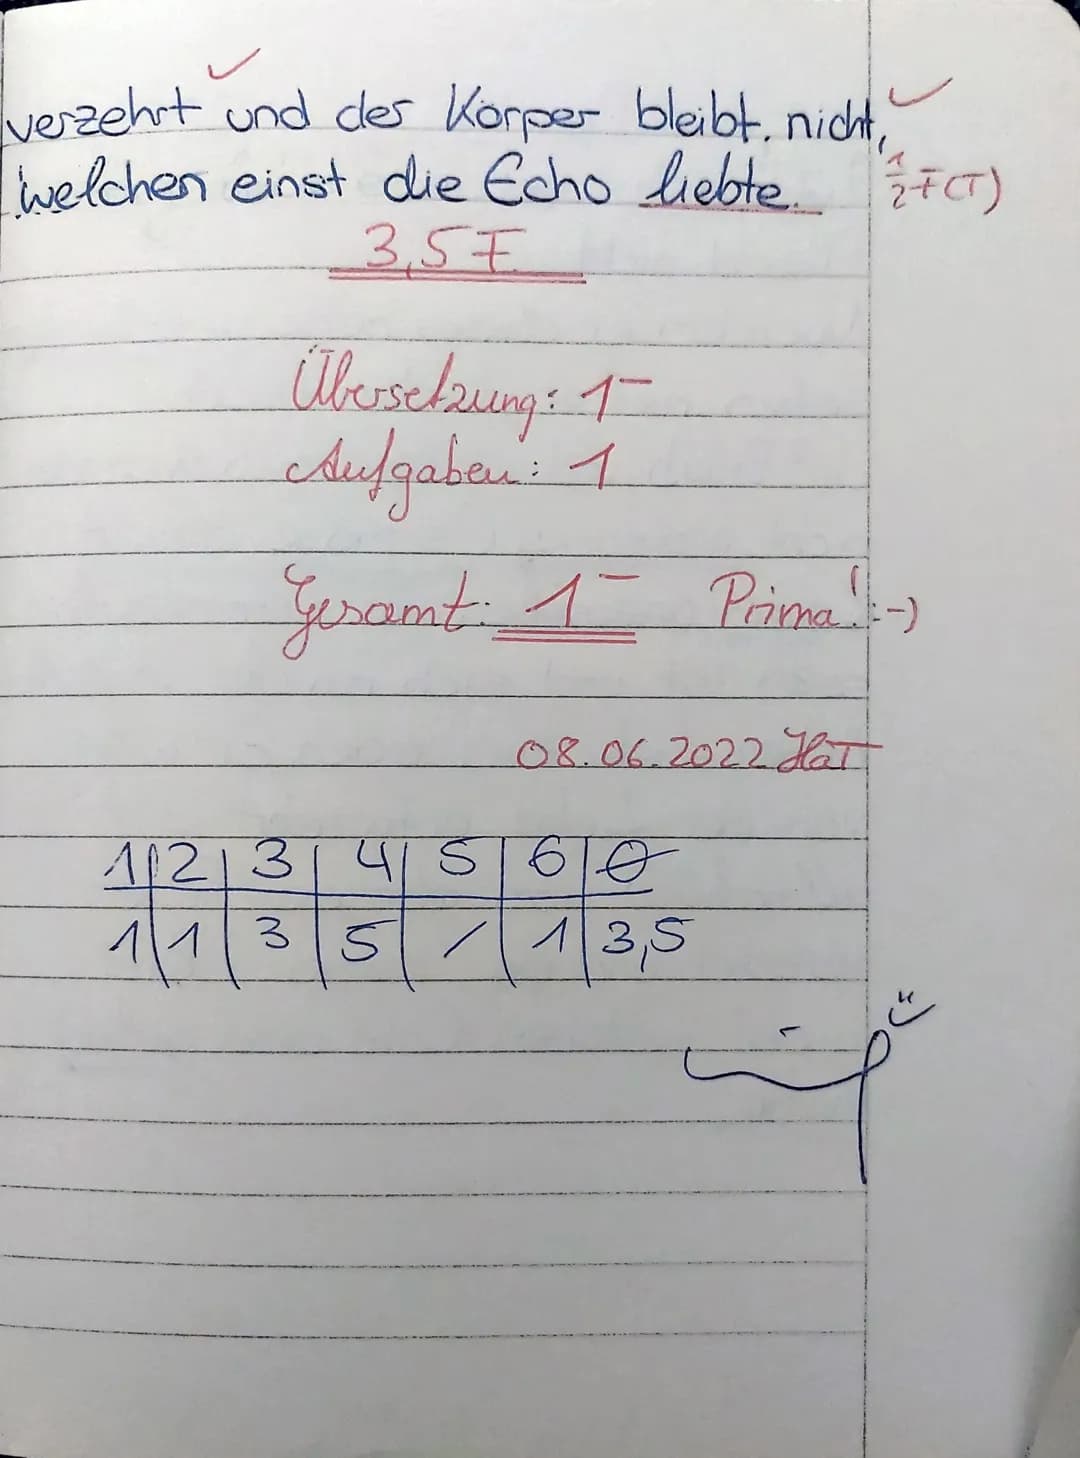 verzehrt und der Körper bleibt nicht,
welchen einst die Echo liebte. 1/2 F(T)
3,5 F
Übersetzung: 1-
Aufgaben: 1
Gesamt: 1- Prima! :-)
08.06.2022 HaT
1 | 2 | 3 | 4 | 5 | 6 | Ø
1 | 1 | 3 | 5 | / | 1 | 3,5